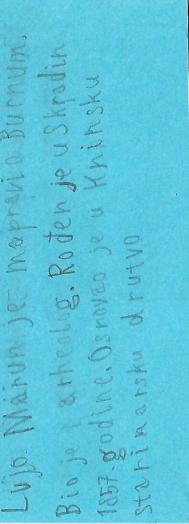 Lujo Marun je mapravio Burnum.
Bio je i arheolog. Rođen je u Skradin
1857. godine. Osnovao je u Kninsku
starinarsku drutvo